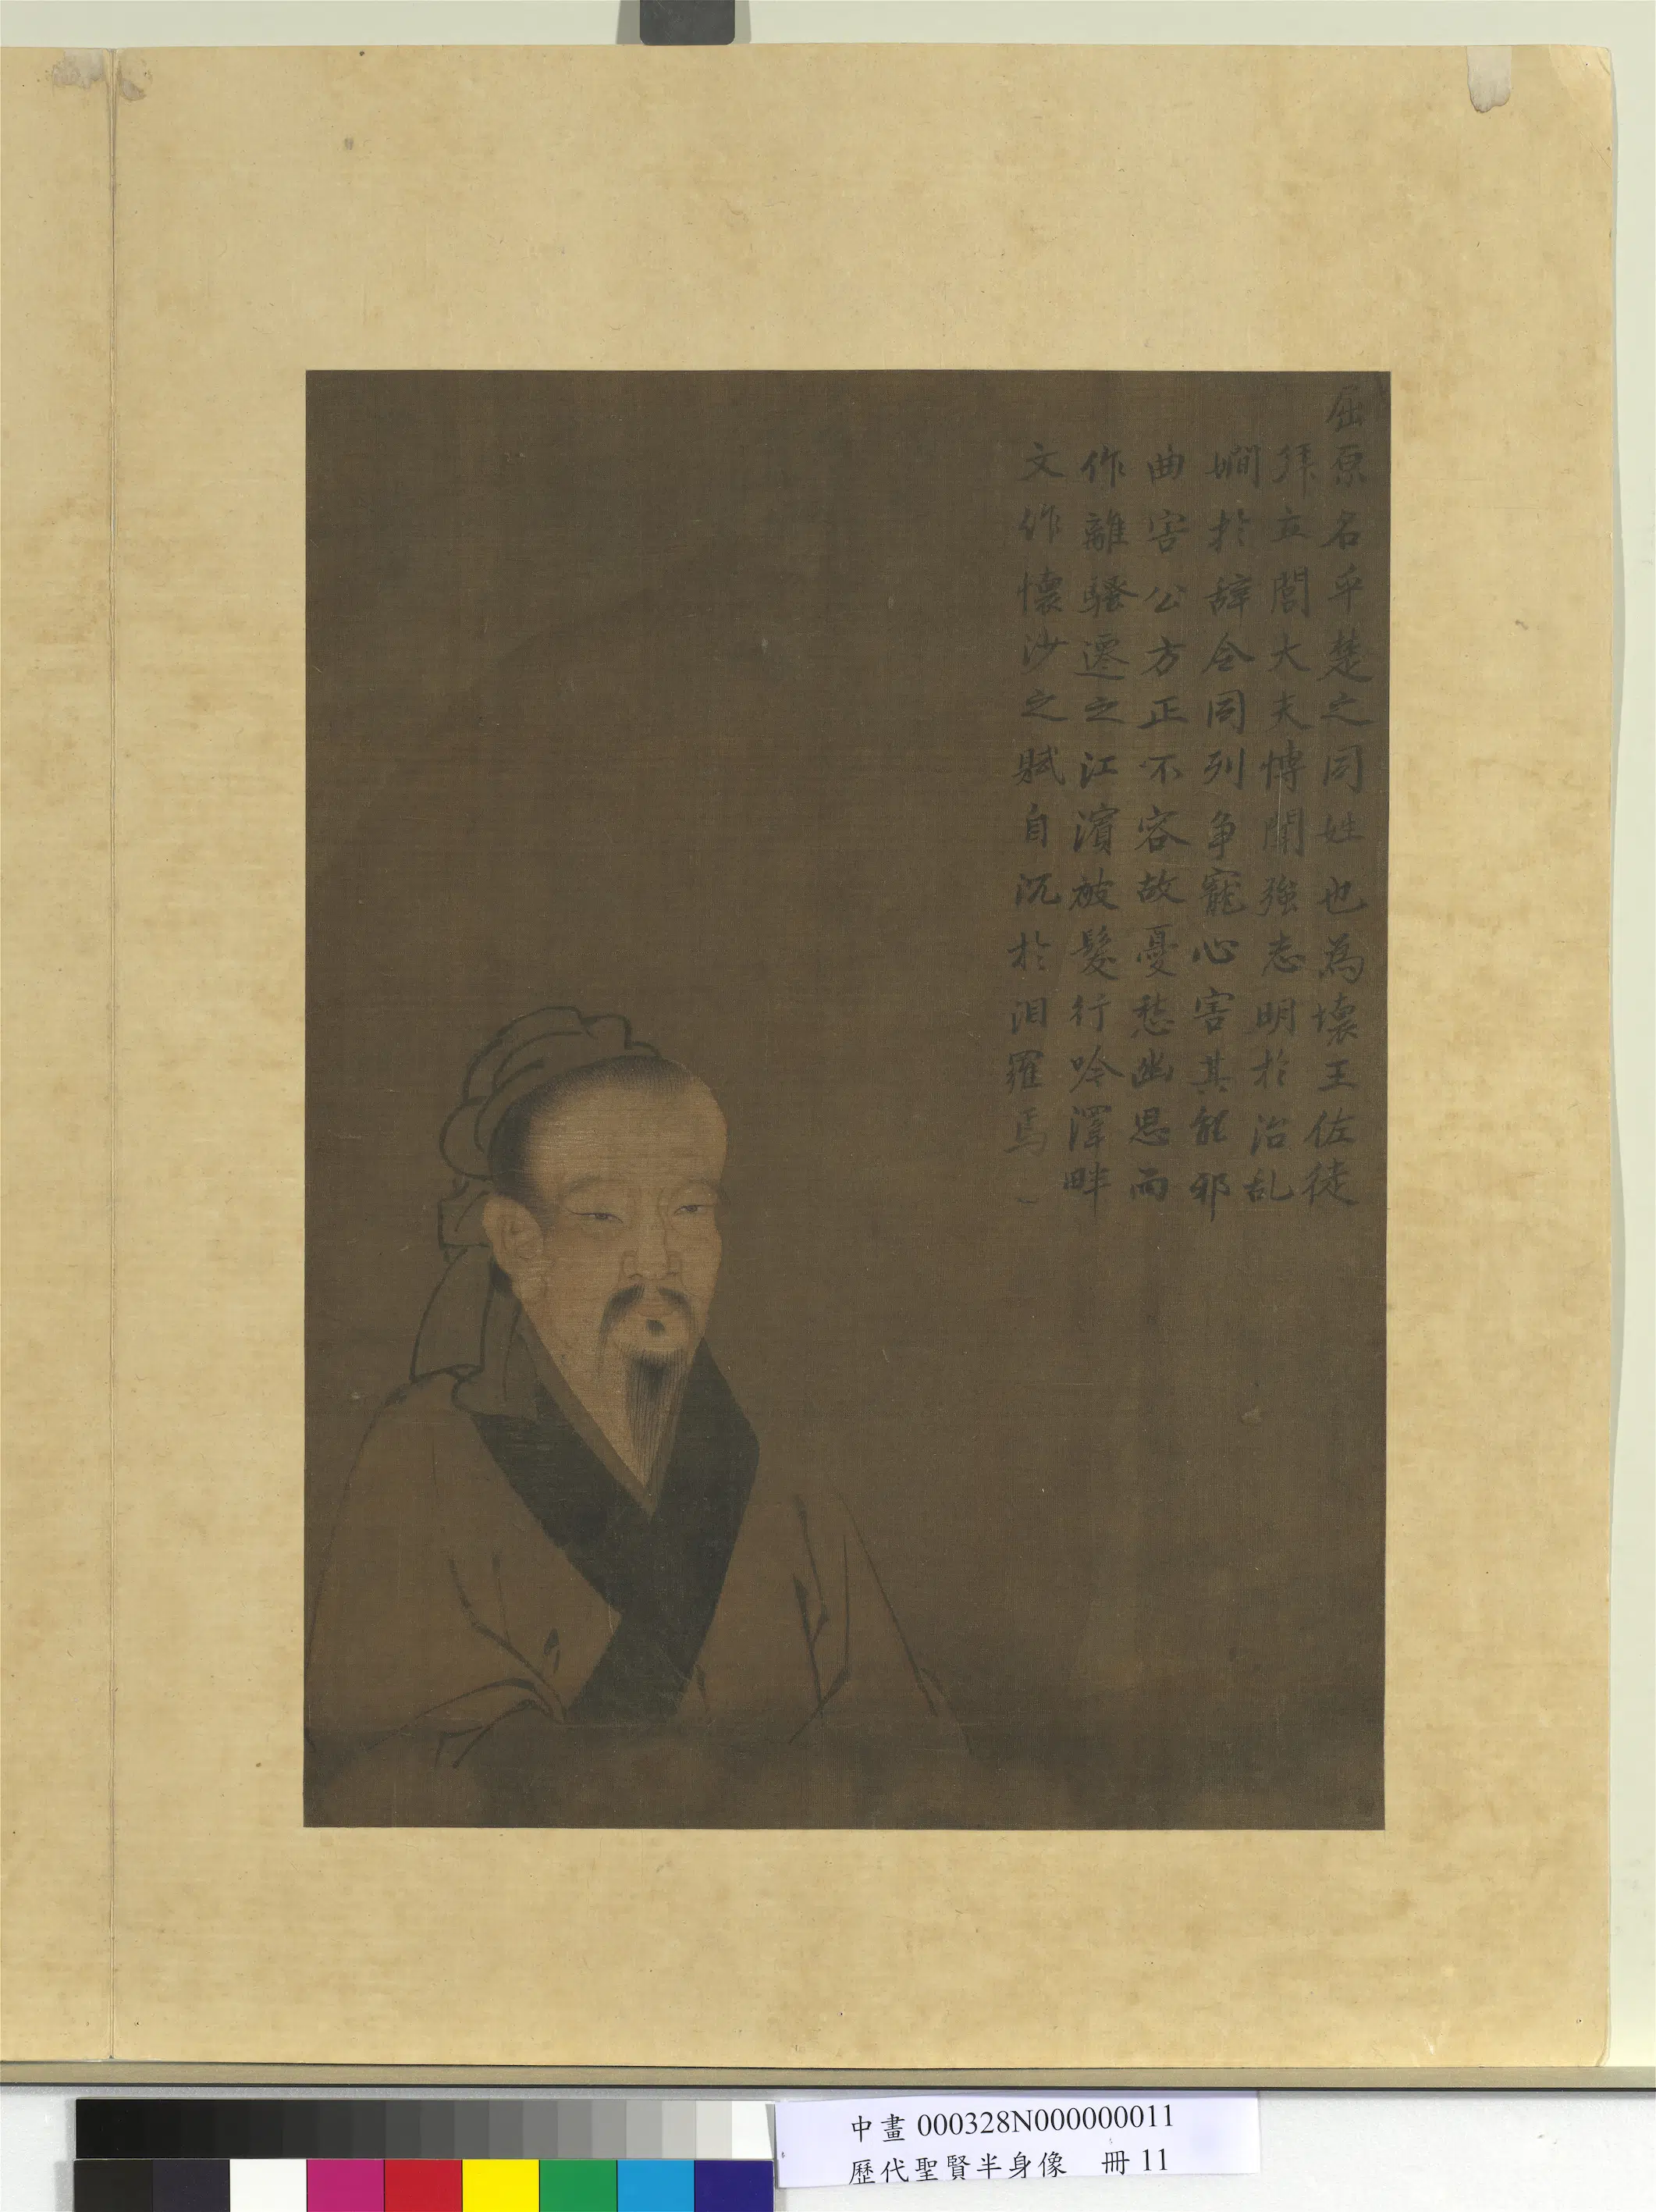 屈原名平楚之同姓也為壞王佐徒
拜左閭大夫博聞強志明於治乱
嫺於辞令同列争寵心害其能邪
曲害公方正不容故憂愁幽思而
作離騷遷之江濱被髮行吟澤畔
文作懷沙之賦自沉於汨羅焉
中畫 000328N000000011
歷代聖賢半身像 冊 11